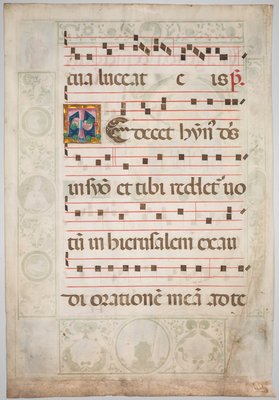 cua luceat eis p̃.
Te decet hỹn̄ d̄s
in syō et tibi reddet̄ uo
tū in hierusalem exau
di orationē meā ad te